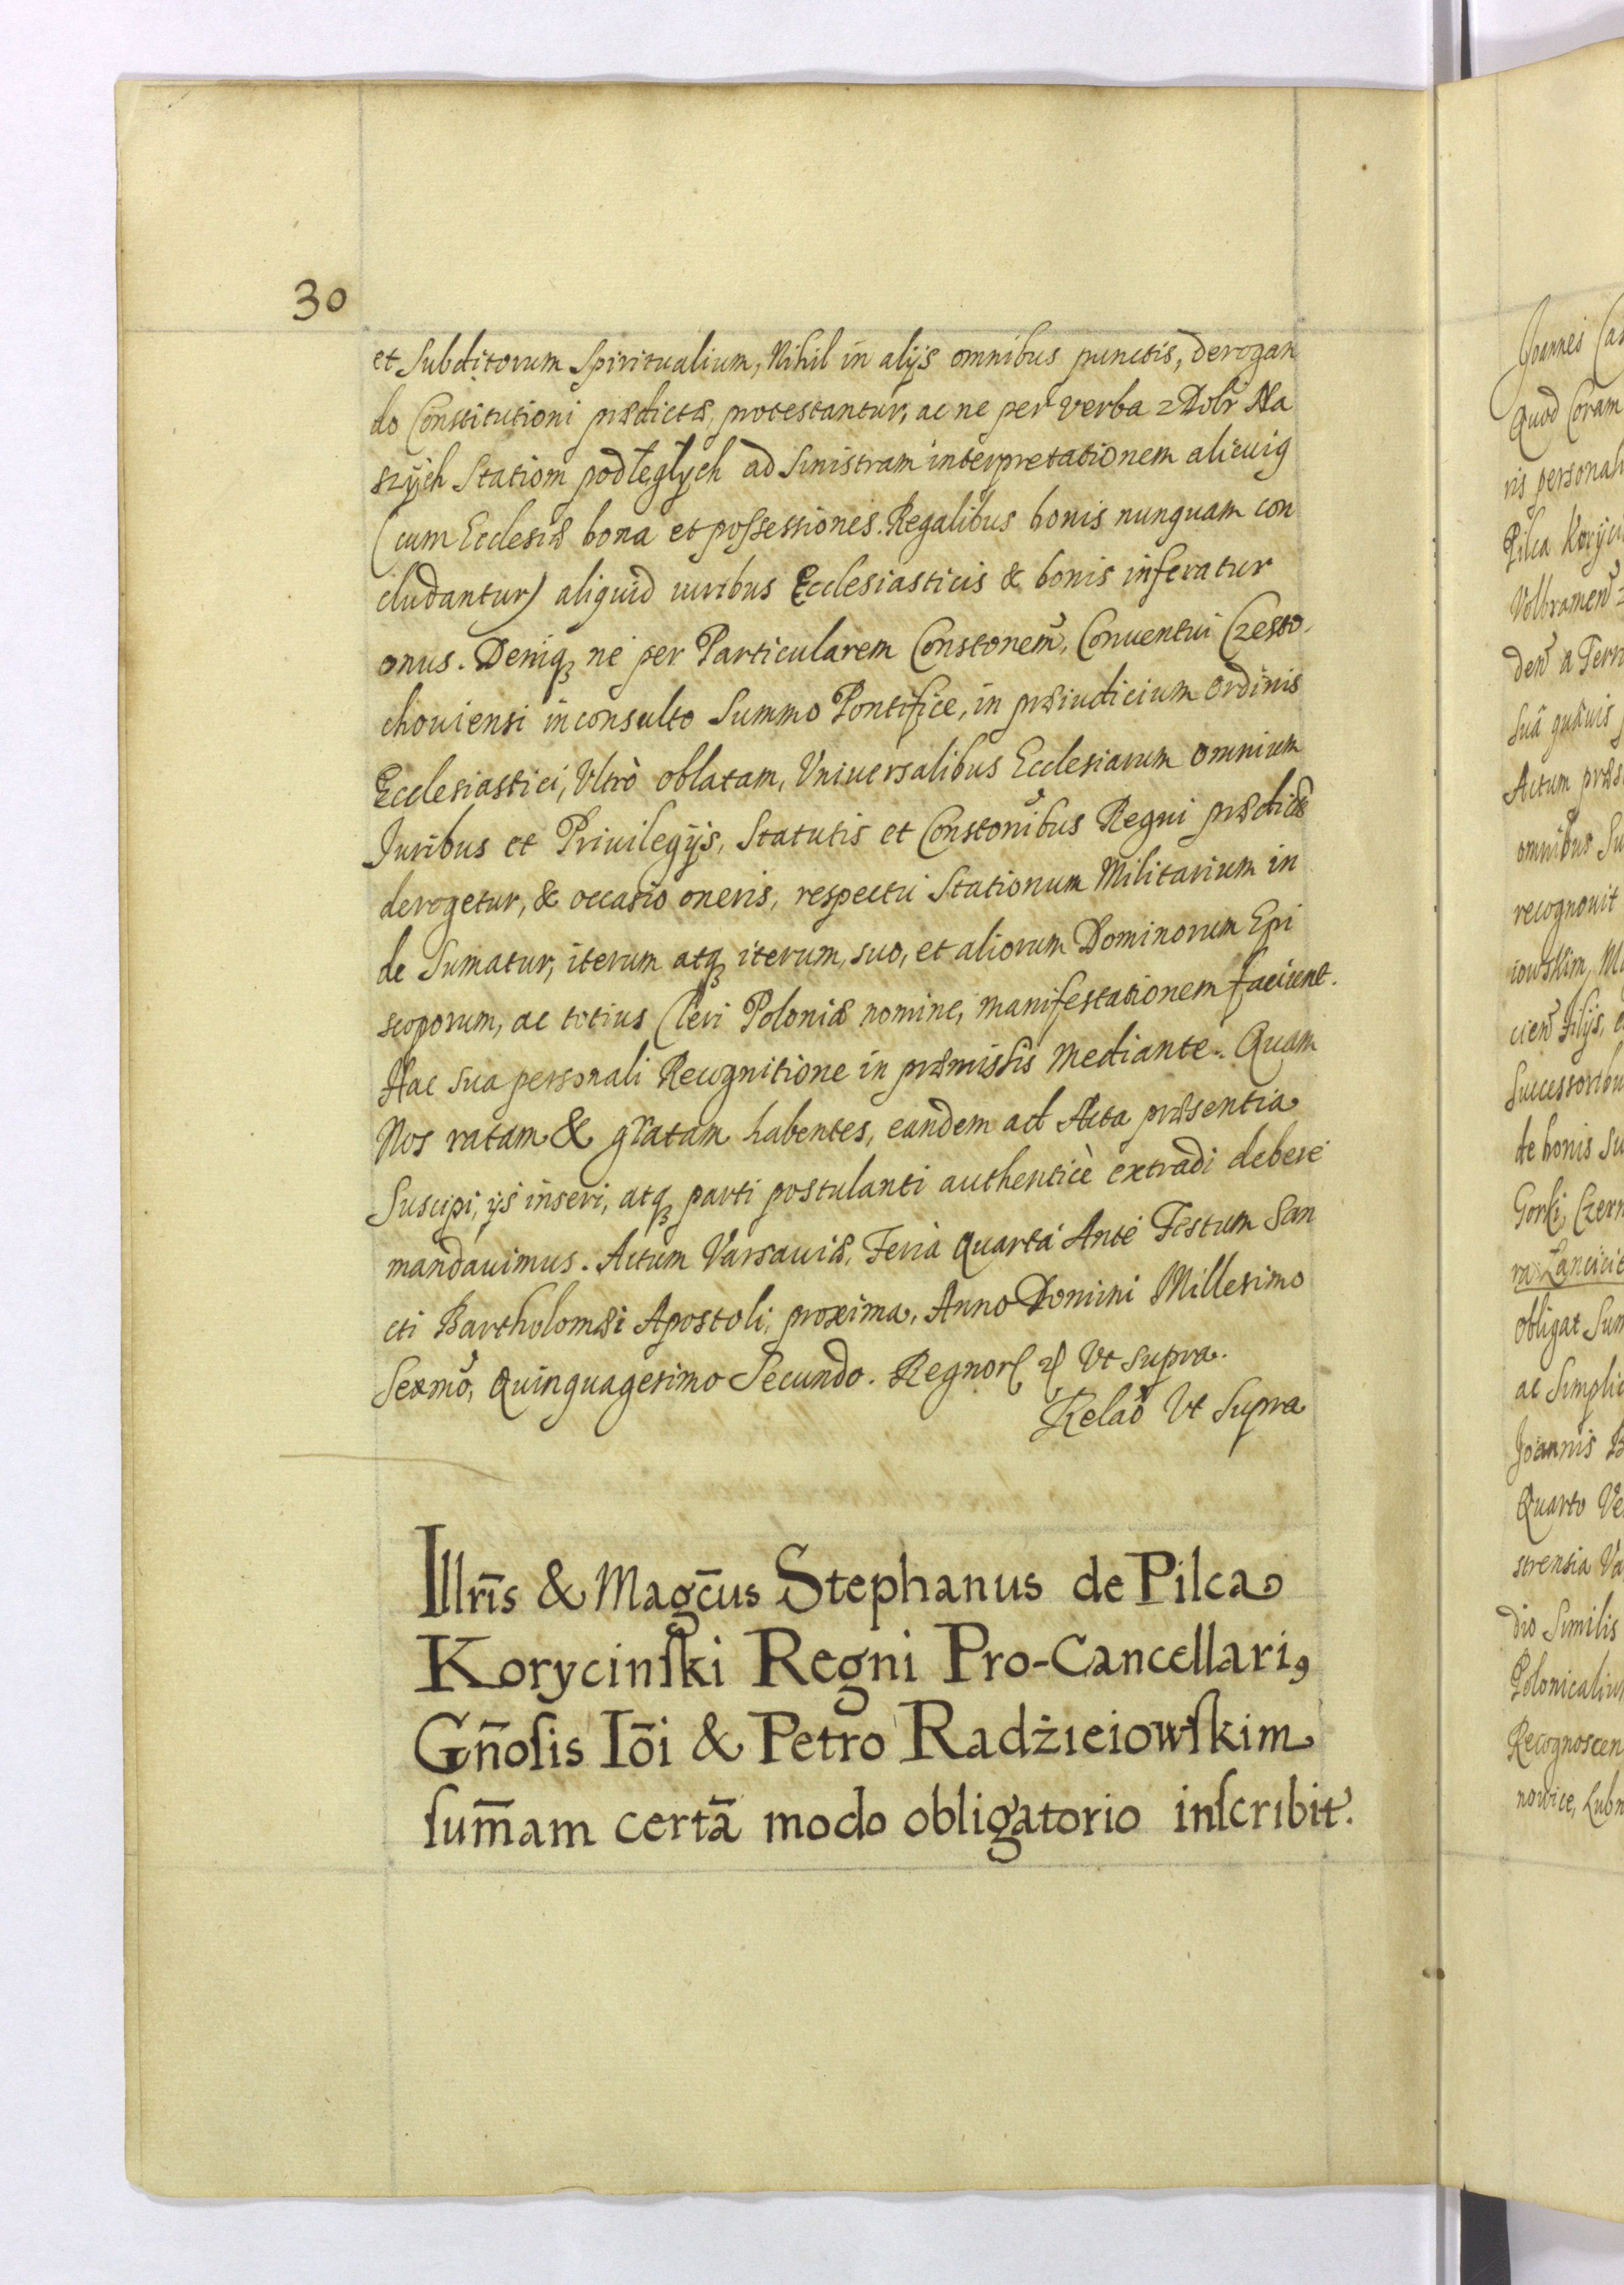 30
et Subditorum Spiritualium, Nihil in alijs omnibus punctis, derogan
do Constitutioni prædictæ, protestantur, ac ne per verba z Dobr Na
szÿch Statiom podłegłych ad Sinistram interpretationem alicuig
(cum Ecclesiæ bona et possessiones Regalibus bonis nunquam con
cludantur) aliquid iuribus Ecclesiasticis & bonis inferatur
onus. Deniqꝫ ne per Particularem Constonem̃, Conuentui Czesto,
chouiensi inconsulto Summo Pontifice, in præiudicium ordinis
Ecclesiastici, Vltrò oblatam, Vniuersalibus Ecclesiarum omnium
Juribus et Priuilegijs, Statutis et Constonib̃us Regni prædictis
derogetur, & occasio oneris, respectu Stationum Militarium in
de Sumatur, iterum atqꝫ iterum, suo, et aliorum Dominorum Epi
scoporum, ac totius Cleri Poloniæ nomine, manifestationem faciunt.
Hac sua personali Recognitione in præmissis mediante. Quam
Nos ratam & gratam habentes, eandem ad Acta præsentia
Suscipi, ijs inseri, atqꝫ parti postulanti authenticè extradi debere
mandauimus. Actum Varsauiæ, Feria Quarta Ante Festum San
cti Bartholomæi Apostoli, proxima, Anno Domini Millesimo
Sexmõ, Quinquagesimo Secundo. Regnor Vt supra.
Relaõ Vt Supra
Illrĩs & Magc̃us Stephanus de Pilca
Korycinſki Regni Pro-Cancellari9
Gñoſis Iõi & Petro Radżieiowſkim
ſum̃am certã modo obligatorio inſcribit.
Joannes Cas
Quod Coram
ris personali
Pilca Koryci
Volbramen̄
den̄ a Terr
Suã quauis
Actum præs
omnibus Su
recognouit
iowskim, Ma
cien̄ Filijs, e
Successoribu
de bonis Su
Gorki, Czern
ra Lancicie
obligat Sum
ac Simplic
Joannis B
Quarto Ve
strensia Va
dio Similis
Polonicaliu
Recognoscen
nowice, Lubn